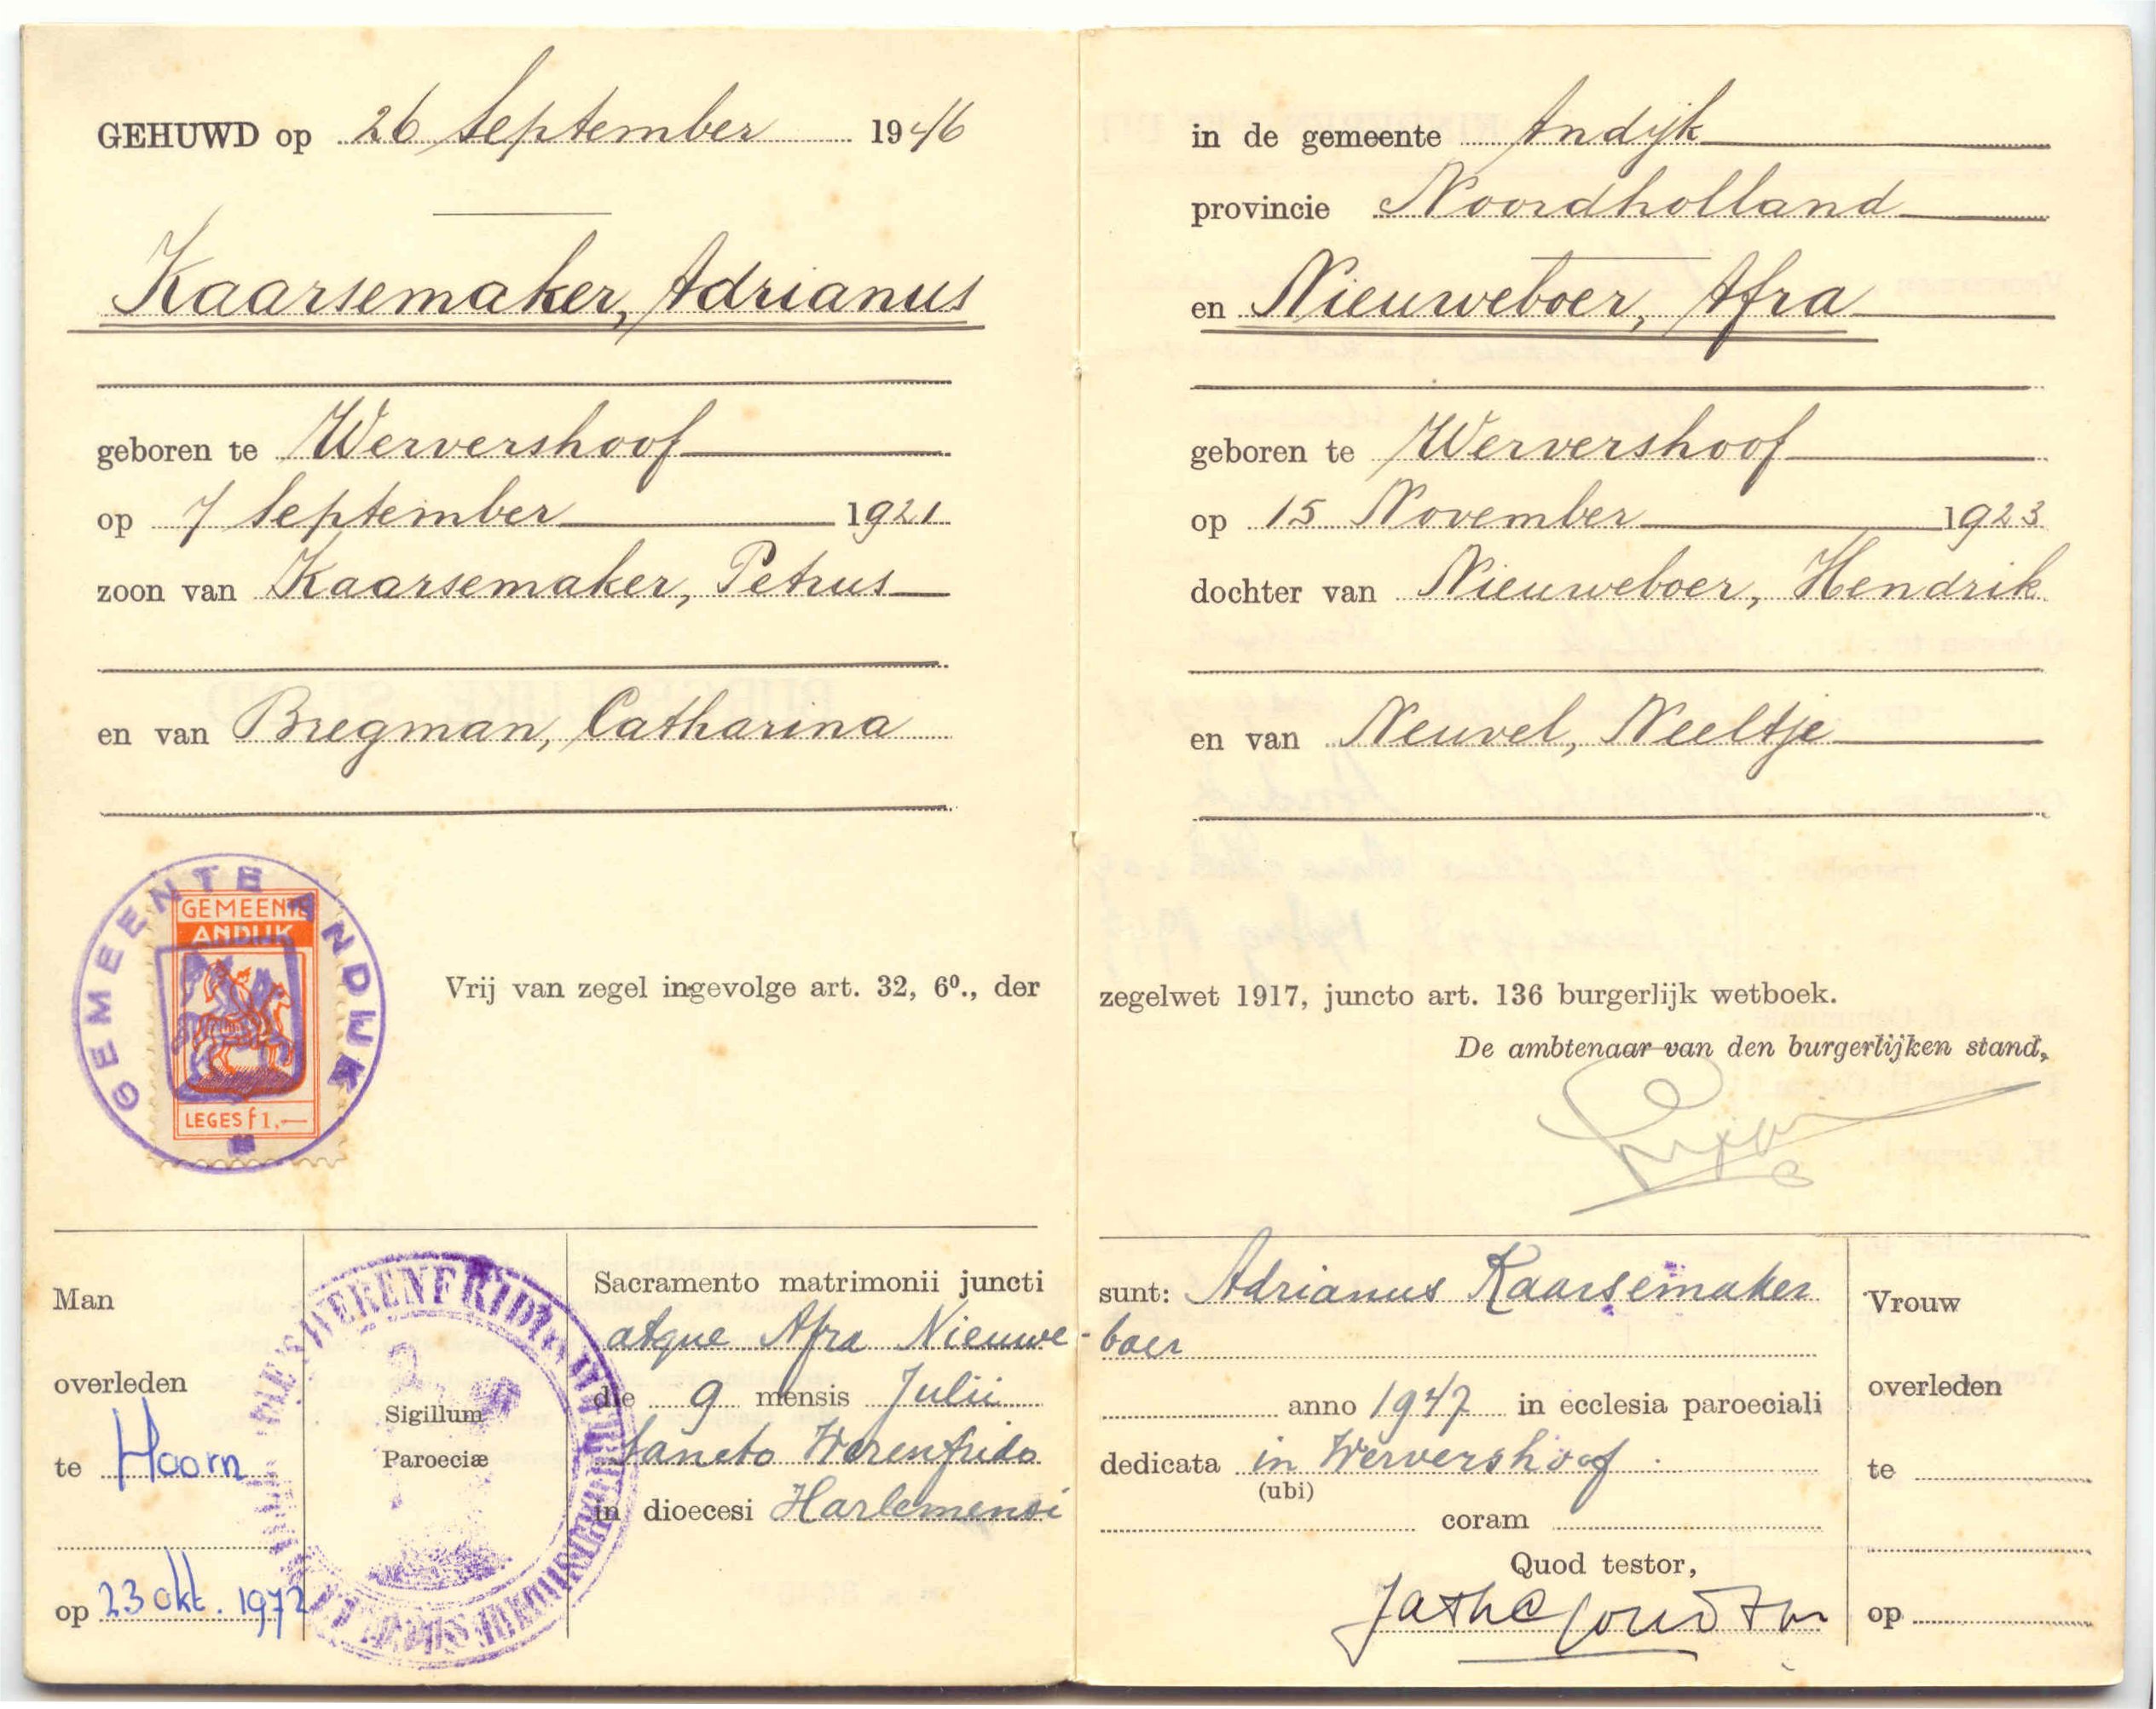 GEHUWD op 26 September 1946
Kaarsemaker, Adrianus
geboren te Wervershoof
op 7 September 1921
zoon van Kaarsemaker, Petrus
en van Bregman, Catharina
GEMEENTE ANDIJK
GEMEENTE
ANDIJK
LEGES f 1.—
Vrij van zegel ingevolge art. 32, 6º., der
Man
overleden
te Hoorn
op 23 okt. 1972
Sigillum
Paroeciæ
WERENFRIDI
Sacramento matrimonii juncti
atque Afra Nieuwe-
die 9 mensis Julii
Sancto Werenfrido
in dioecesi Harlemensi
in de gemeente Andijk
provincie Noordholland
en Nieuweboer, Afra
geboren te Wervershoof
op 15 November 1923
dochter van Nieuweboer, Hendrik
en van Neuvel, Neeltje
zegelwet 1917, juncto art. 136 burgerlijk wetboek.
De ambtenaar van den burgerlijken stand,
sunt: Adrianus Kaarsemaker
boer
anno 1947 in ecclesia paroeciali
dedicata in Wervershoof
(ubi)
coram
Quod testor,
Vrouw
overleden
te
op